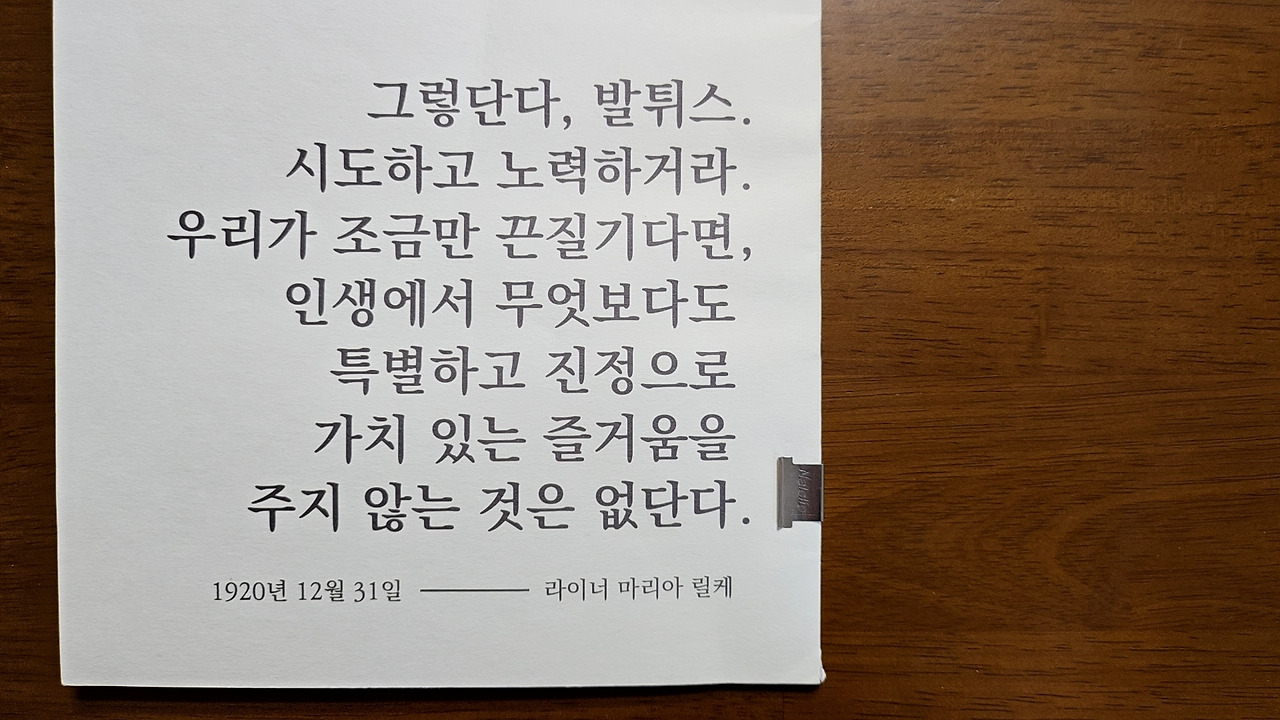 그렇단다, 발튀스.
시도하고 노력하거라.
우리가 조금만 끈질기다면,
인생에서 무엇보다도
특별하고 진정으로
가치 있는 즐거움을
주지 않는 것은 없단다.
1920년 12월 31일 ——— 라이너 마리아 릴케